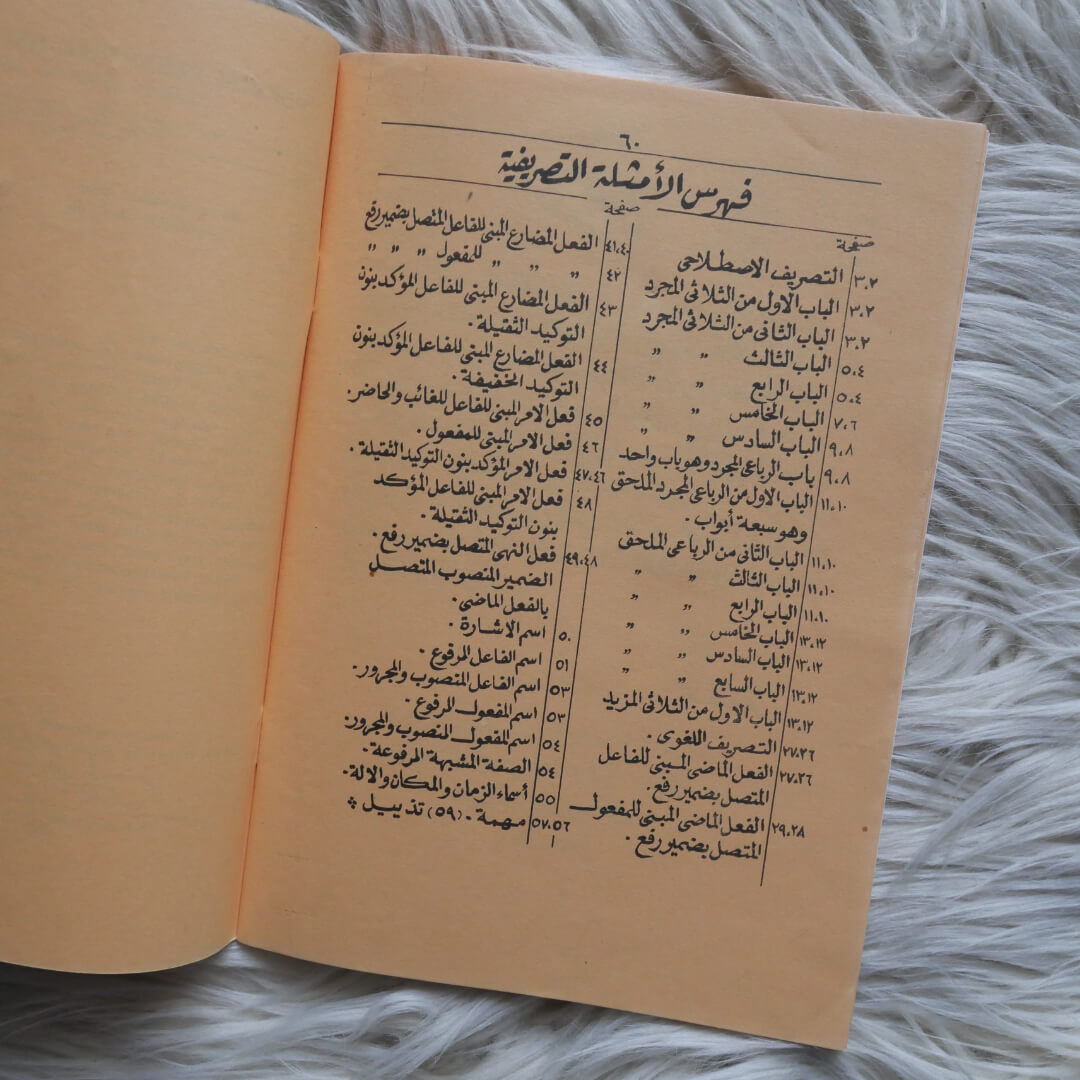 ٦٠
فهرس الأمثلة التصريفية
صفحة
٣،٢ التصريف الاصطلاحى
٣،٢ الباب الاول من الثلاثى المجرد
٣،٢ الباب الثانى من الثلاثى المجرد
٥،٤ الباب الثالث " "
٥،٤ الباب الرابع " "
٧،٦ الباب الخامس " "
٩،٨ الباب السادس " "
٩،٨ باب الرباعى المجرد وهو باب واحد
١١،١٠ الباب الاول من الرباعى المجرد الملحق
وهو سبعة أبواب .
١١،١٠ الباب الثانى من الرباعى الملحق
١١،١٠ الباب الثالث " "
١١،١٠ الباب الرابع " "
١٣،١٢ الباب الخامس " "
١٣،١٢ الباب السادس " "
١٣،١٢ الباب السابع " "
١٣،١٢ الباب الاول من الثلاثى المزيد
٢٧،٢٦ التصريف اللغوى .
٢٧،٢٦ الفعل الماضى المبنى للفاعل
المتصل بضمير رفع .
٢٩،٢٨ الفعل الماضى المبنى للمفعول
المتصل بضمير رفع .
صفحة
٤١،٤٠ الفعل المضارع المبنى للفاعل المتصل بضمير رفع
٤٢ " " " للمفعول " " "
٤٣ الفعل المضارع المبنى للفاعل المؤكد بنون
التوكيد الثقيلة .
٤٤ الفعل المضارع المبنى للفاعل المؤكد بنون
التوكيد الخفيفة .
٤٥ فعل الامر المبنى للفاعل للغائب والحاضر .
٤٦ فعل الامر المبنى للمفعول .
٤٧،٤٦ فعل الامر المؤكد بنون التوكيد الثقيلة .
٤٨ فعل الامر المبنى للفاعل المؤكد
بنون التوكيد الثقيلة .
٤٩،٤٨ فعل النهى المتصل بضمير رفع .
الضمير المنصوب المتصل
بالفعل الماضي .
٥٠ اسم الاشارة .
٥١ اسم الفاعل المرفوع .
٥٣ اسم الفاعل المنصوب والمجرور .
٥٣ اسم المفعول المرفوع .
٥٤ اسم المفعول المنصوب والمجرور .
٥٤ الصفة المشبهة المرفوعة .
٥٥ أسماء الزمان والمكان والالة .
٥٧،٥٦ مهمة . (٥٩) تذييل *